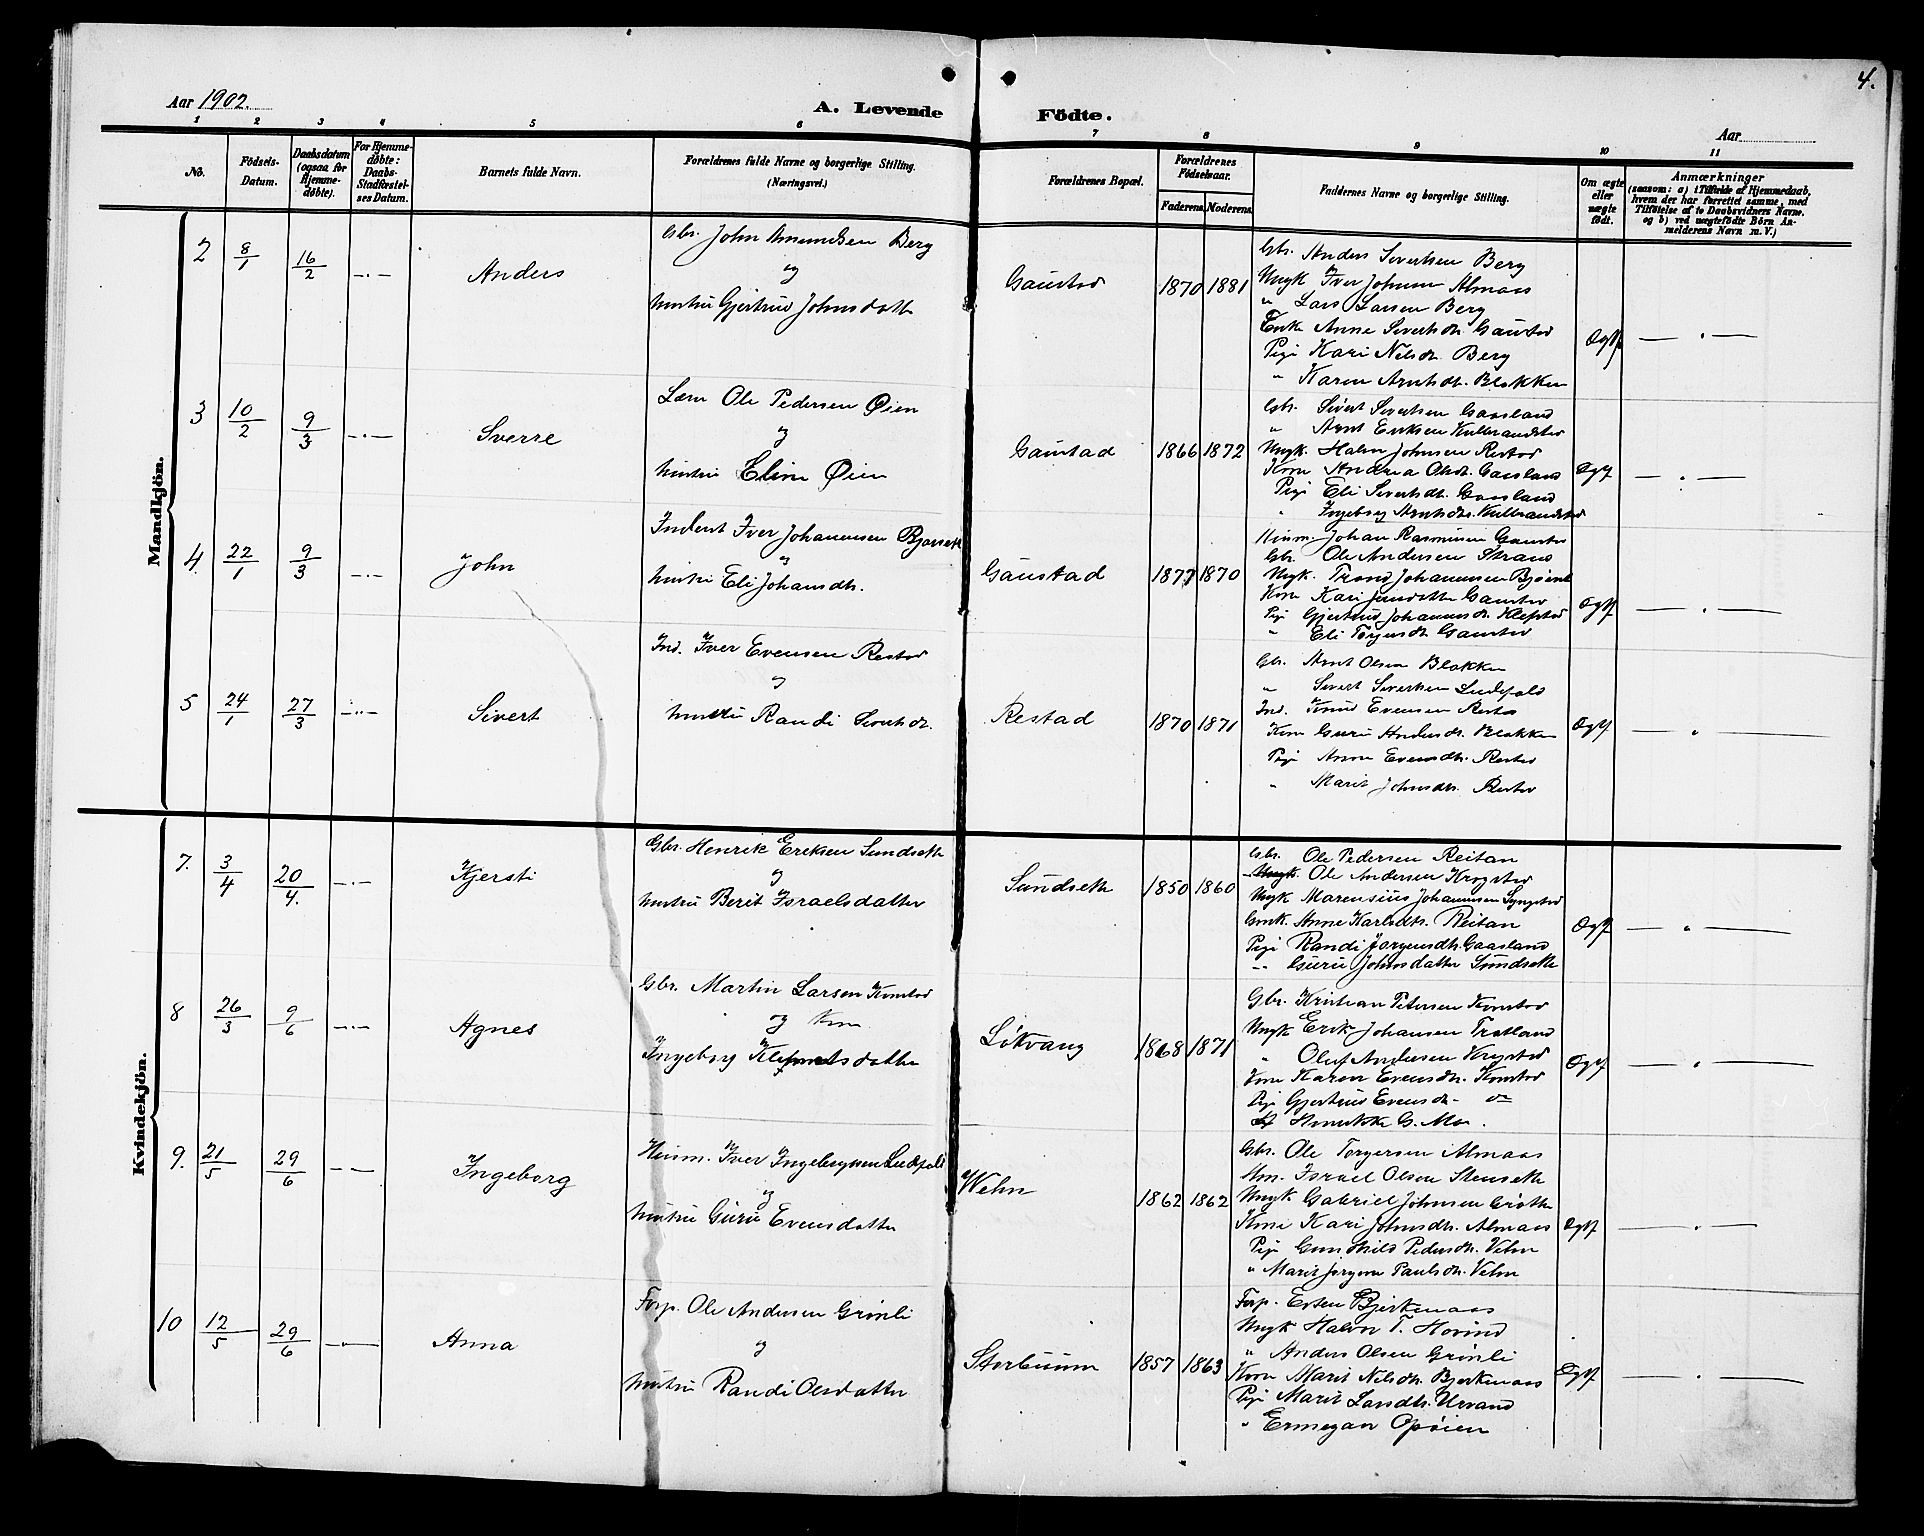 Aar 1902.
A. Levende Födte.
Aar
4.
1 2 3 4 5 6 7 8 9 10 11
No.
Födsels-Datum.
Daabsdatum (ogsaa for Hjemme-döbte).
For Hjemme-döbte: Daabs-Stadfæstel-ses Datum.
Barnets fulde Navn.
Forældrenes fulde Navne og borgerlige Stilling.
(Næringsvei.)
Forældrenes Bopæl.
Forældrenes Födselsaar.
Faderens. Moderens.
Faddernes Navne og borgerlige Stilling.
Om ægte eller uægte födt.
Anmærkninger
(saasom: a) i Tilfælde af Hjemmedaab,
hvem der har forrettet samme, med
Tilföielse af to Daabsvidners Navne,
og b) ved uægtefödte Börn An-
melderens Navn m. V.)
Mandkjön.
2 8/1 16/2 Anders
Gbr. John Amundsen Berg
og
Hustru Gjertrud Johnsdatter
Gaustad 1870 1881
Gbr. Anders Sivertsen Berg
Ungk Iver Johnsen Almaas
" Lars Larsen Berg
Enke Anne Sivertsdt. Gaustad
Pige Kari Nilsdt. Berg
" Karen Arntsdt. Blokken
Ægte
3 10/2 9/3 Sverre
Lærer Ole Pedersen Øien
og
Hustru Eline Øien
Gaustad 1866 1872
Gbr. Sivert Sivertsen Gaasland
" Arnt Eriksen Kulbrandstad
Ungk. Halvor Johnsen Restad
Kone Andrea Olsdt. Gaasland
Pige Eli Sivertsdt. Gaasland
" Ingeborg Arntsdt. Kulbrandstad
Ægte
4. 22/1 9/3 John
Inderst Iver Johannesen
og
Hustru Eli Johansdt.
Gaustad 1877 1870
Husm. Johan Rasmusen Gaustad
Gbr. Ole Andersen Strand
Ungk. Trond Johannesen
Kone Kari Jensdatter Gaustad
Pige Gjertrud Johannesdt. Klefstad
" Eli Torgersdt. Gaustad
Ægte
5 24/1 27/3 Sivert
Ind. Iver Evensen Restad
og
Hustru Randi Sivertsdt.
Restad 1870 1871
Gbr. Arnt Olsen Blokken
" Sivert Sivertsen
Ind. Knud Evensen Restad
Kone Guru Andersdt. Blokken
Pige Anne Evensdt. Restad
" Marit Johnsdt. Restad
Ægte
Kvindekjön.
7. 3/4 20/4. Kjersti
Gbr. Henrik Eriksen Sundseth
og
Hustru Berit Israelsdatter
Sundseth 1850 1860
Gbr. Ole Pedersen Reitan
Ungk. Ole Andersen Krogstad
Ungk Marensius Johannesen
Gmk. Anne Karlsdt. Reitan
Pige Randi Jørgensdt. Gaasland
" Guru Johnsdatter Sundseth
Ægte
8 26/3 9/6 Agnes
Gbr. Martin Larsen Komstad
og Kone
Ingeborg Klemetsdatter
Løkvang 1868 1871
Gbr. Kristian Petersen Komstad
Ungk Erik Johansen Tratland
" Oluf Andersen Krogstad
Kone Karen Evensdt. Komstad
Pige Gjertrud Evensdt.
Henrikke G. Moe.
Ægte
9. 21/5 29/6 Ingeborg
Husm. Iver Ingebrigtsen
og
Hustru Guru Evensdatter
Wehn 1862 1862
Gbr. Ole Torgersen Almaas
Israel Olsen Stenseth
Ungk. Gabriel Johnsen Grøthe
Kone Kari Johnsdt. Almaas
Pige Gunhild Pedersdt. Vehn
" Marit Jørgine Paulsdt. Vehn
Ægte
10 12/5 29/6 Anna
Forp. Ole Andersen Grønli
og
Hustru Randi Olsdatter
Storbuum 1857 1863
Forp. Esten Bjerkenaas
Ungk Halvor T. Hovind
" Anders Olsen Grønli
Kone Marit Nilsdt. Bjerkenaas
Pige Marit Larsdt. Urvand
" Ermegan Opøien
Ægte